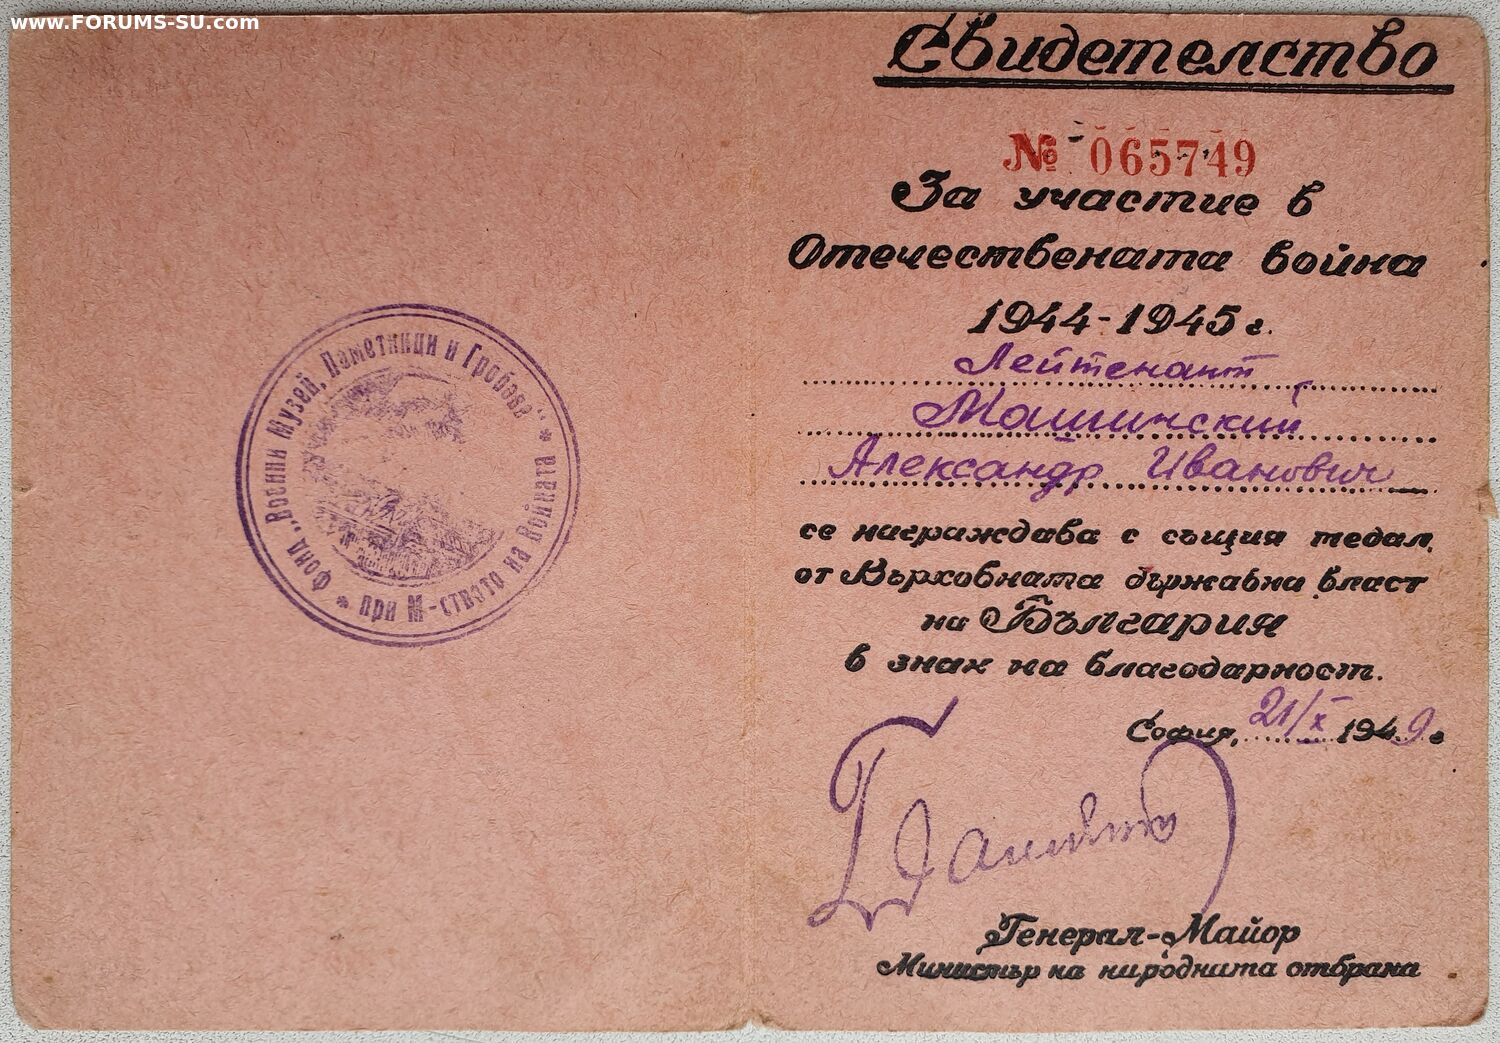 www.FORUMS-SU.com
Свидетелство
№ 065749
За участие в
Отечествената война
1944-1945 г.
Лейтенант
Машинский
Александр Иванович
се награждава с същия медал,
от Върховната държавна власт
на България
в знак на благодарност.
София, 21/X 1949 г.
Генерал-Майор
Министър на народната отбрана
Фонд „Военни Музей, Паметници и Гробове"
* при М-ството на Войната *